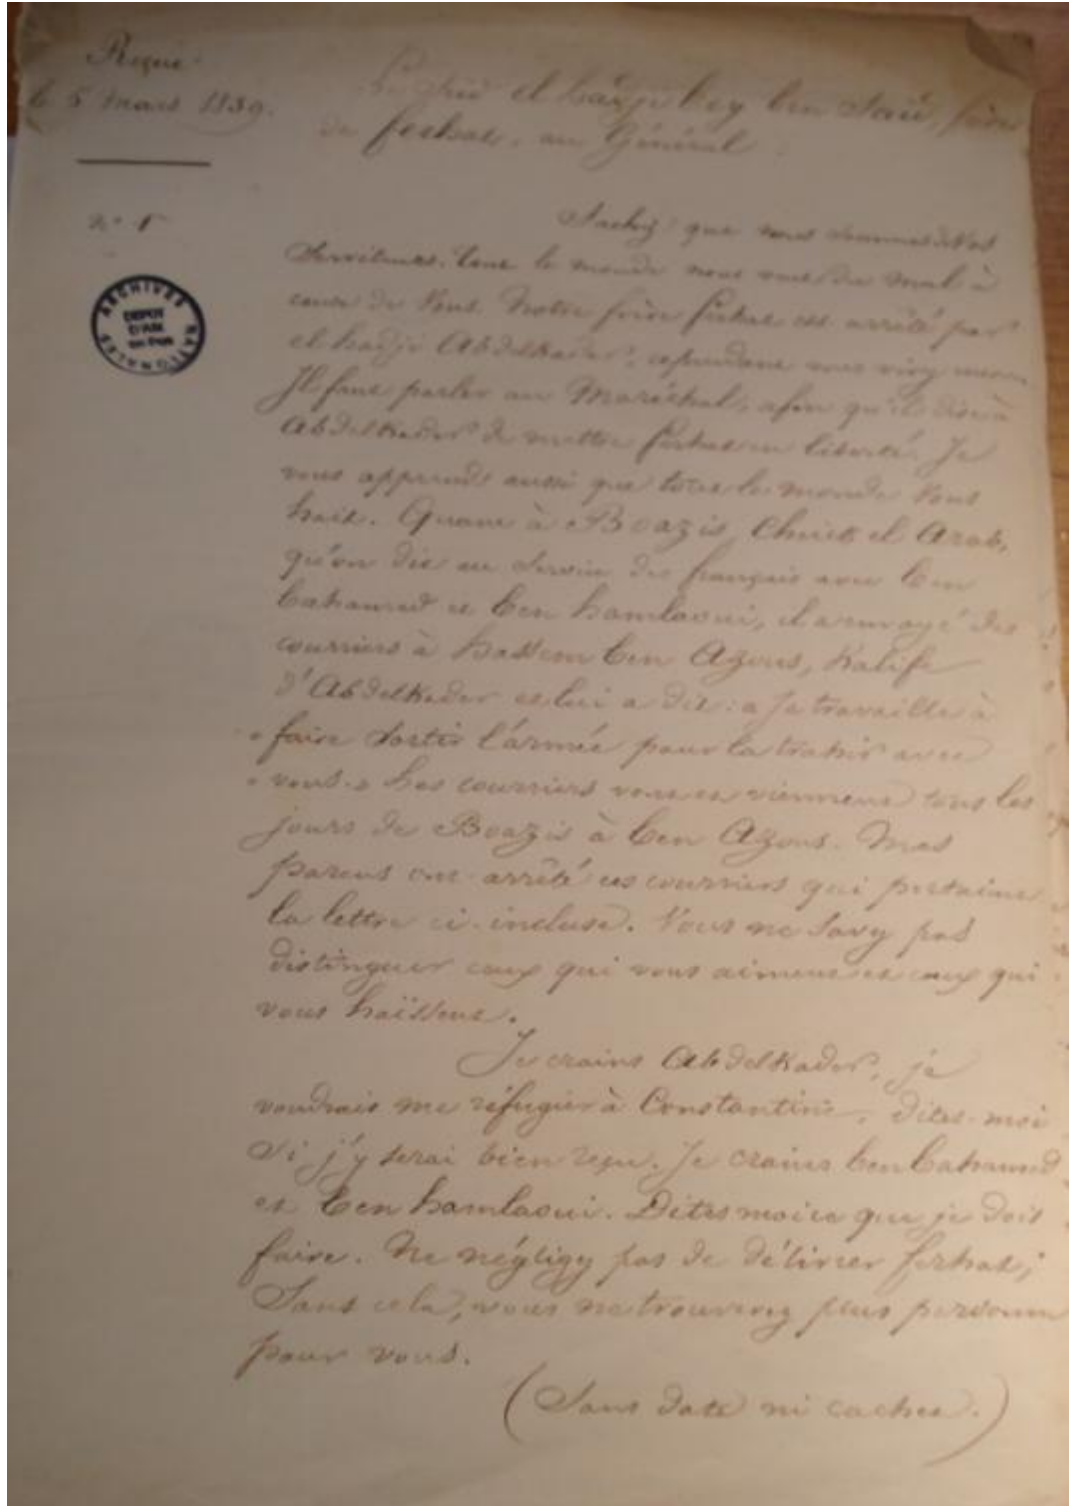 Reçue
le 5 Mars 1839.
el hadji bey ben Saïd, frère
de ferhat, au Général :
N° 1
ARCHIVES NATIONALES
DEPOT
D'AIX
Sachez que nous sommes vos
serviteurs. Tout le monde nous veut du mal à
cause de vous. Notre frère ferhat est arrêté par
el hadji Abdelkader, cependant vous vivez
Il faut parler au Maréchal, afin qu'il dise à
Abdelkader de mettre ferhat en liberté. Je
vous apprends aussi que tout le monde vous
hait. Quant à Boazis, Cheick el Arab,
qu'on dit au service des français avec ben
bahamed et ben hamlaoui, il a envoyé des
courriers à hassem ben Azous, Kalife
d'Abdelkader et lui a dit : « Je travaille à
« faire sortir l'armée pour la trahir avec
« vous. » Les courriers vont et viennent tous les
jours de Boazis à ben Azous. Mes
parens ont arrêté ces courriers qui portaient
la lettre ci-incluse. Vous ne savez pas
distinguer ceux qui vous aiment et ceux qui
vous haïssent.
Je crains Abdelkader, je
voudrais me réfugier à Constantine, dites-moi
si j'y serai bien reçu. Je crains ben bahamed
et ben hamlaoui. Dites moi ce que je dois
faire. Ne négligez pas de délivrer ferhat ;
Sans cela, vous ne trouverez plus personne
pour vous.
(Sans date ni cachet.)